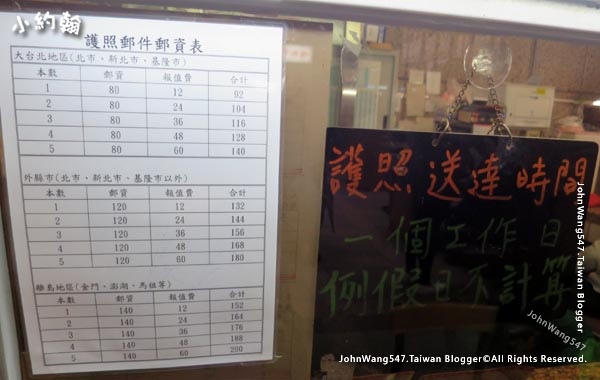 小約翰
護照郵件郵資表
大台北地區(北市、新北市、基隆市)
本數 郵資 報值費 合計
1 80 12 92
2 80 24 104
3 80 36 116
4 80 48 128
5 80 60 140
外縣市(北市、新北市、基隆市以外)
本數 郵資 報值費 合計
1 120 12 132
2 120 24 144
3 120 36 156
4 120 48 168
5 120 60 180
離島地區(金門、澎湖、馬祖等)
本數 郵資 報值費 合計
1 140 12 152
2 140 24 164
3 140 36 176
4 140 48 188
5 140 60 200
護照送達時間
一個工作日
例假日不計算
JohnWang547.Taiwan Blogger
JohnWang547
JohnWang547.Taiwan Blogger©All Rights Reserved.